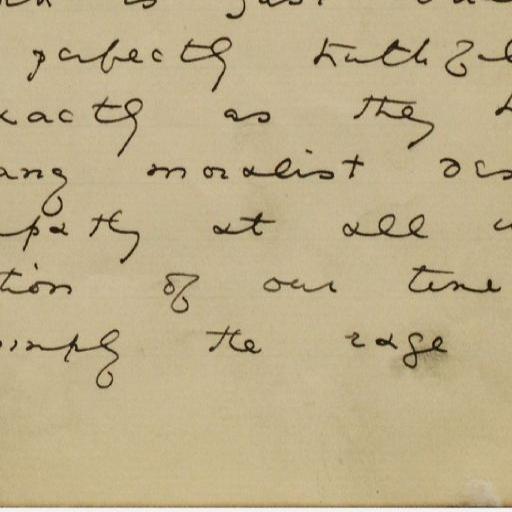 is just
perfectly truthful
xactly as they
any moralist
mpathy at all
tion of our time
simply the rage